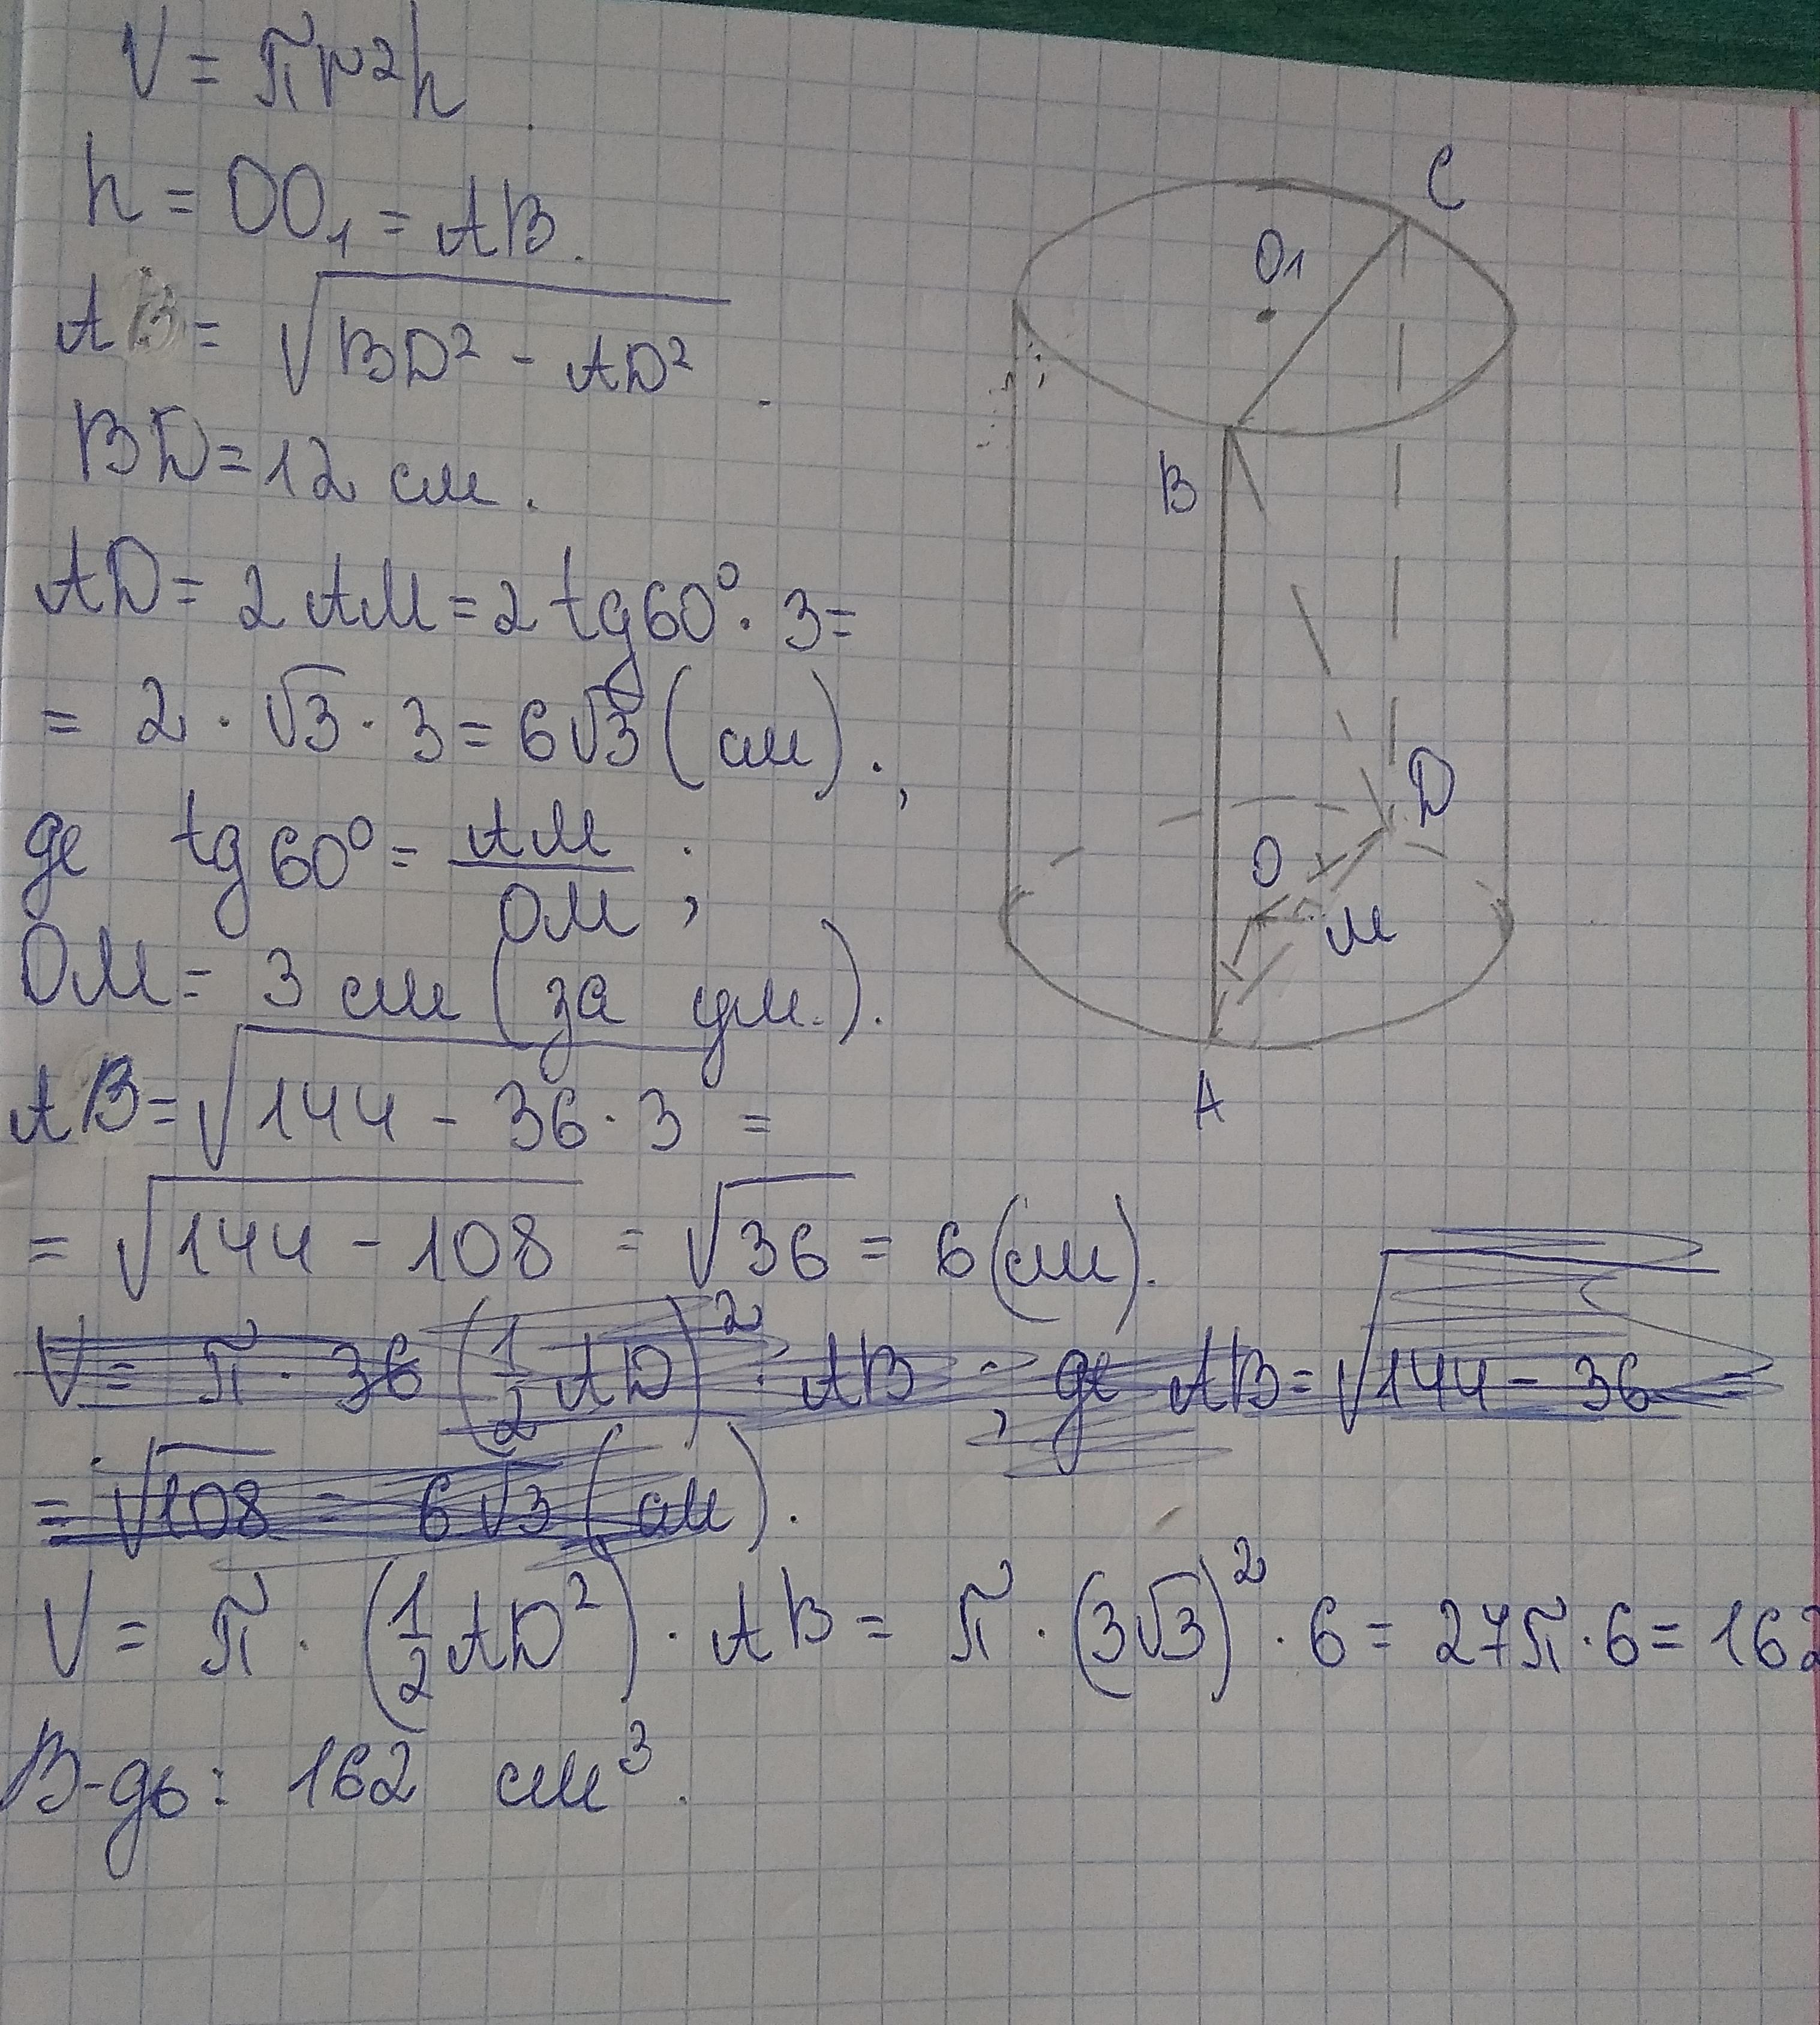 V = πr²h
h = OO₁ = AB.
AB = √(BD² - AD²).
BD = 12 см.
AD = 2 AM = 2 tg60° · 3 =
= 2 · √3 · 3 = 6√3 (см).,
де tg 60° = AM / OM ;
OM = 3 см (за ум.).
AB = √(144 - 36 · 3) =
= √(144 - 108) = √36 = 6 (см).
V = π · 36 (1/2 AD)² · AB ; де AB = √(144 - 36) =
= √108 = 6√3 (см).
V = π · (1/2 AD²) · AB = π · (3√3)² · 6 = 27π · 6 = 162
В-дь: 162 см³.
C
O1
B
D
O
M
A